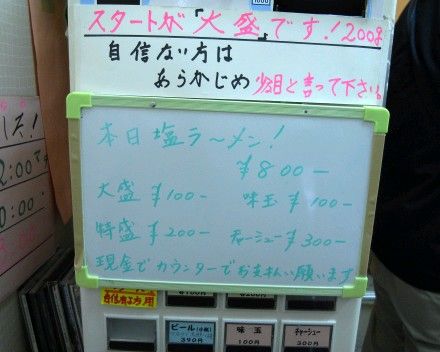 スタートが「大盛」です！2008
自信ない方は
あらかじめ 少な目と言って下さい。
本日塩ラーメン！
¥800-
大盛 ¥100- 味玉 ¥100-
特盛 ¥200- チャーシュー ¥300-
現金でカウンターでお支払い願います
自信有る方用
¥100円 ¥200円
ビール(小瓶) 味玉 チャーシュー
390円 100円 300円